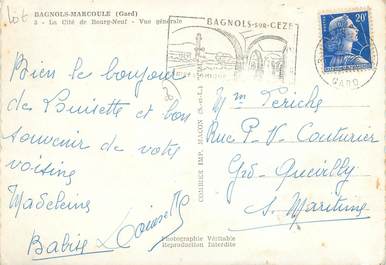 BAGNOLS-MARCOULE (Gard)
3 - La Cité de Bourg-Neuf - Vue générale
BAGNOLS-SUR-CEZE
20F
GARD
Bien le bonjour
de Louisette et bon
souvenir de votre
voisine
Madeleine
Babise Louisette
COMBIER IMP. MACON (S.-et-L.)
Mme Periche
Rue P-V-Couturier
Grd-Quevilly
S. Maritime
Photographie Véritable
Reproduction Interdite